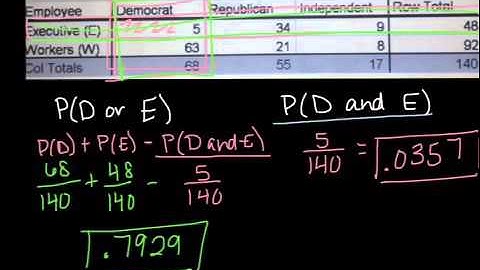 Employee Democrat Republican Independent Row Total
Executive (E) 5 34 9 48
Workers (W) 63 21 8 92
Col Totals 68 55 17 140
P(D or E)
P(D) + P(E) - P(D and E)
68/140 + 48/140 - 5/140
.7929
P(D and E)
5/140 = .0357